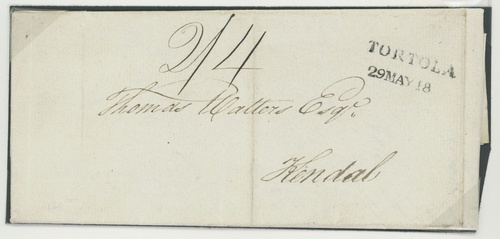 2/4
TORTOLA
29MAY18
Thomas Walters Esqr.
Kendal